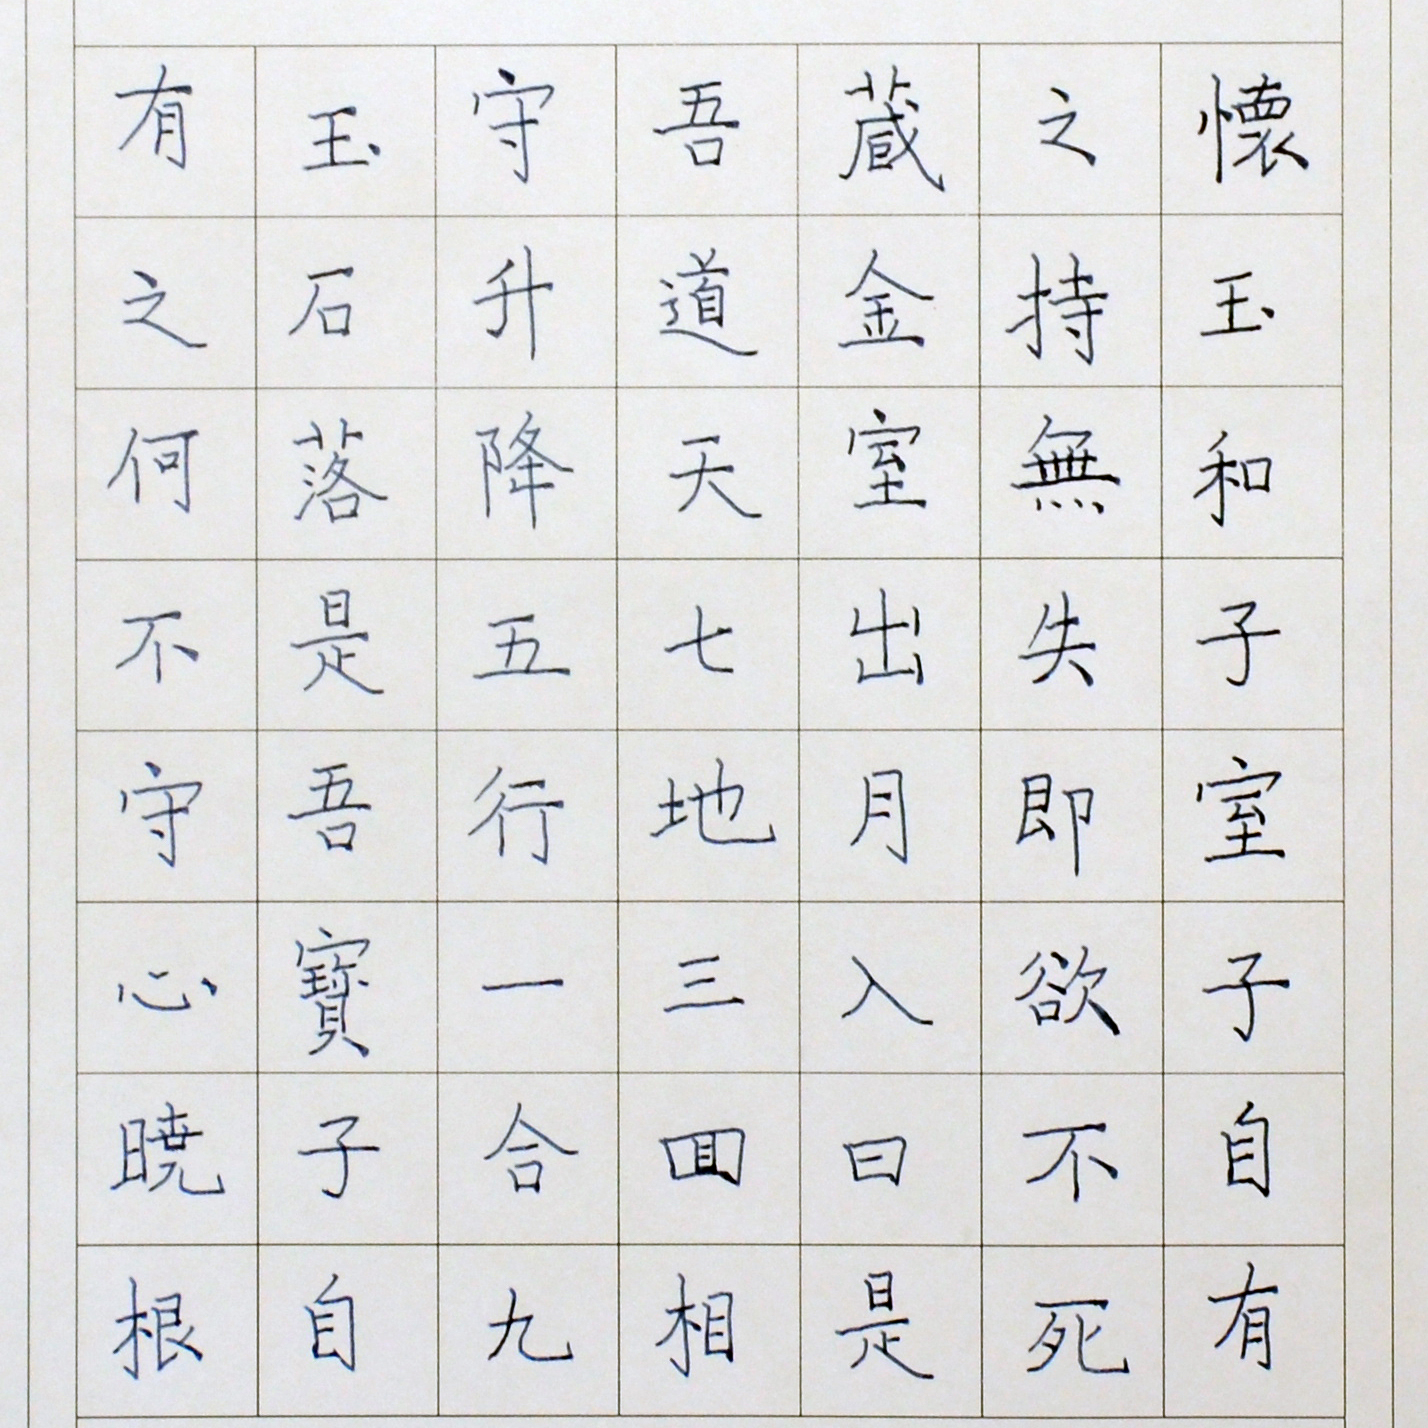 懷玉和子室子自有
之持無失即欲不死
蔵金室出月入日是
吾道天七地三回相
守升降五行一合九
玉石落是吾寶子自
有之何不守心曉根